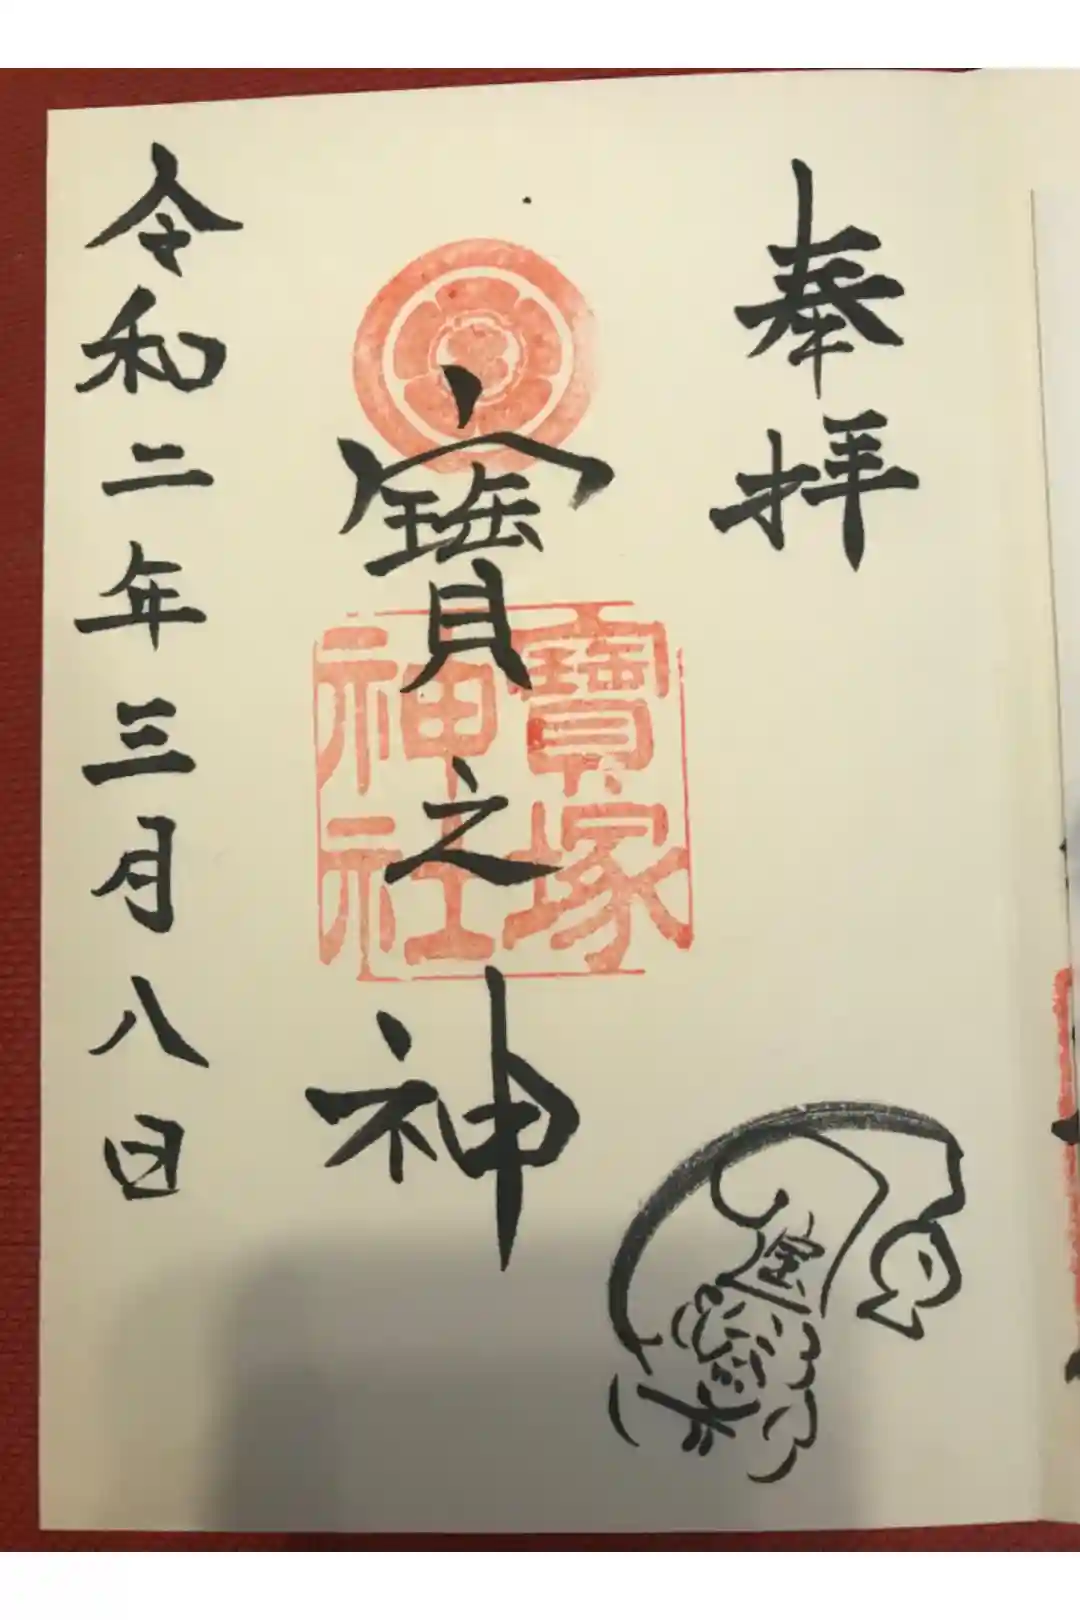 奉拝
寳之神
寳塚
神社
令和二年三月八日
宝